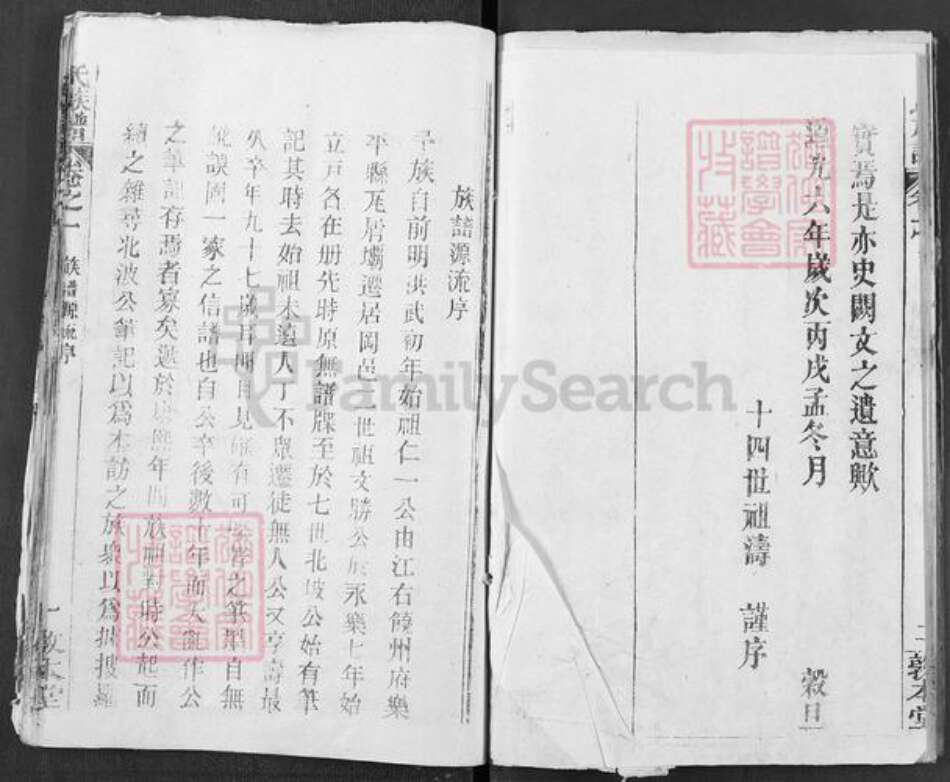 實焉是亦史闕文之遺意歟
道光六年歲次丙戌孟冬月
穀日
十四世祖濤 謹序
敦本堂
族譜源流序
予族自前明洪武初年始祖仁一公由江右饒州府樂
平縣瓦屑壩遷居岡邑二世祖文勝公於永樂七年始
立戶各在冊先時原無譜牒至於七世北坡公始有筆
記其時去始祖未遠人丁不眾遷徙無人公又享壽最
久卒年九十七歲耳聞目見確有可 之筆墨自無
訛誤固一家之信譜也自公卒後數十年而 作公
之筆記存焉者寡矣迨於 年間族祖對時公起而
續之雜尋北波公筆記以為本訪之族眾以為 搜羅
氏族譜 卷之一 族譜源流序
一 敦本堂
FamilySearch